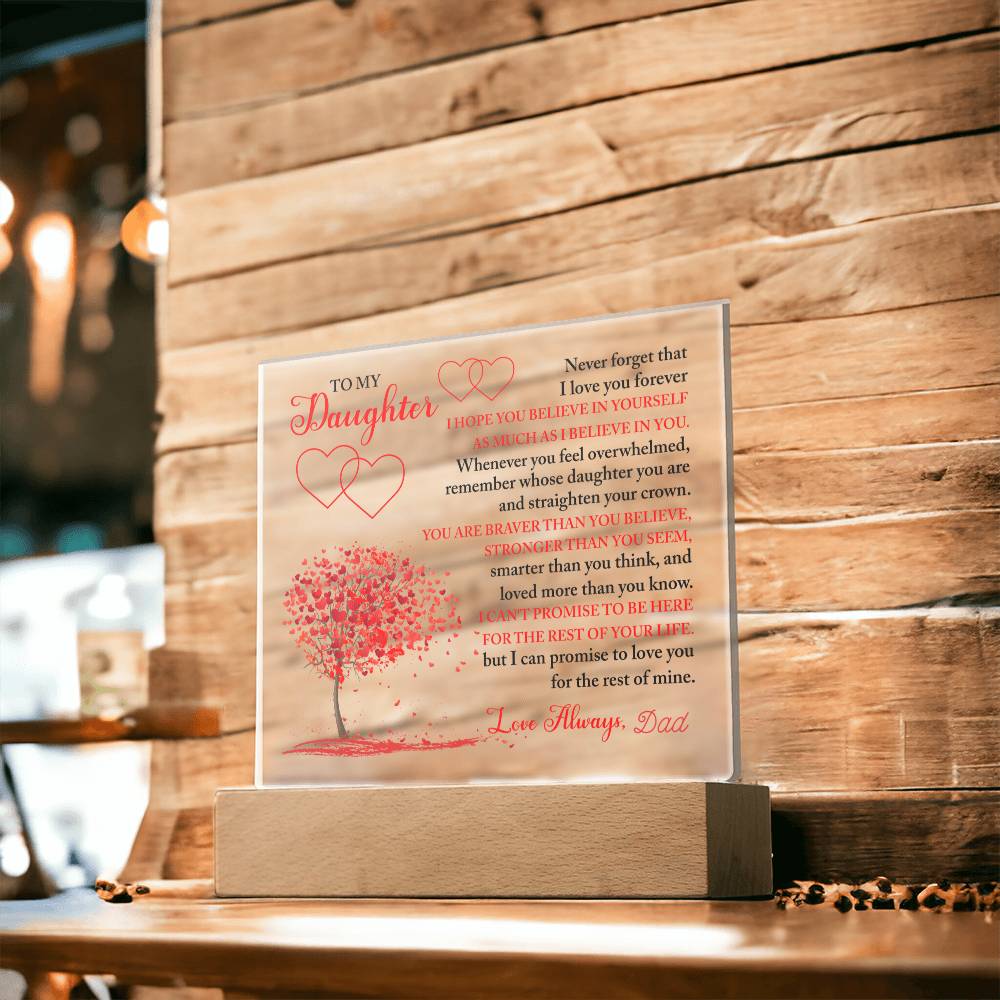 TO MY
Daughter
Never forget that
I love you forever
I HOPE YOU BELIEVE IN YOURSELF
AS MUCH AS I BELIEVE IN YOU.
Whenever you feel overwhelmed,
remember whose daughter you are
and straighten your crown.
YOU ARE BRAVER THAN YOU BELIEVE,
STRONGER THAN YOU SEEM,
smarter than you think, and
loved more than you know.
I CAN'T PROMISE TO BE HERE
FOR THE REST OF YOUR LIFE.
but I can promise to love you
for the rest of mine.
Love Always, Dad